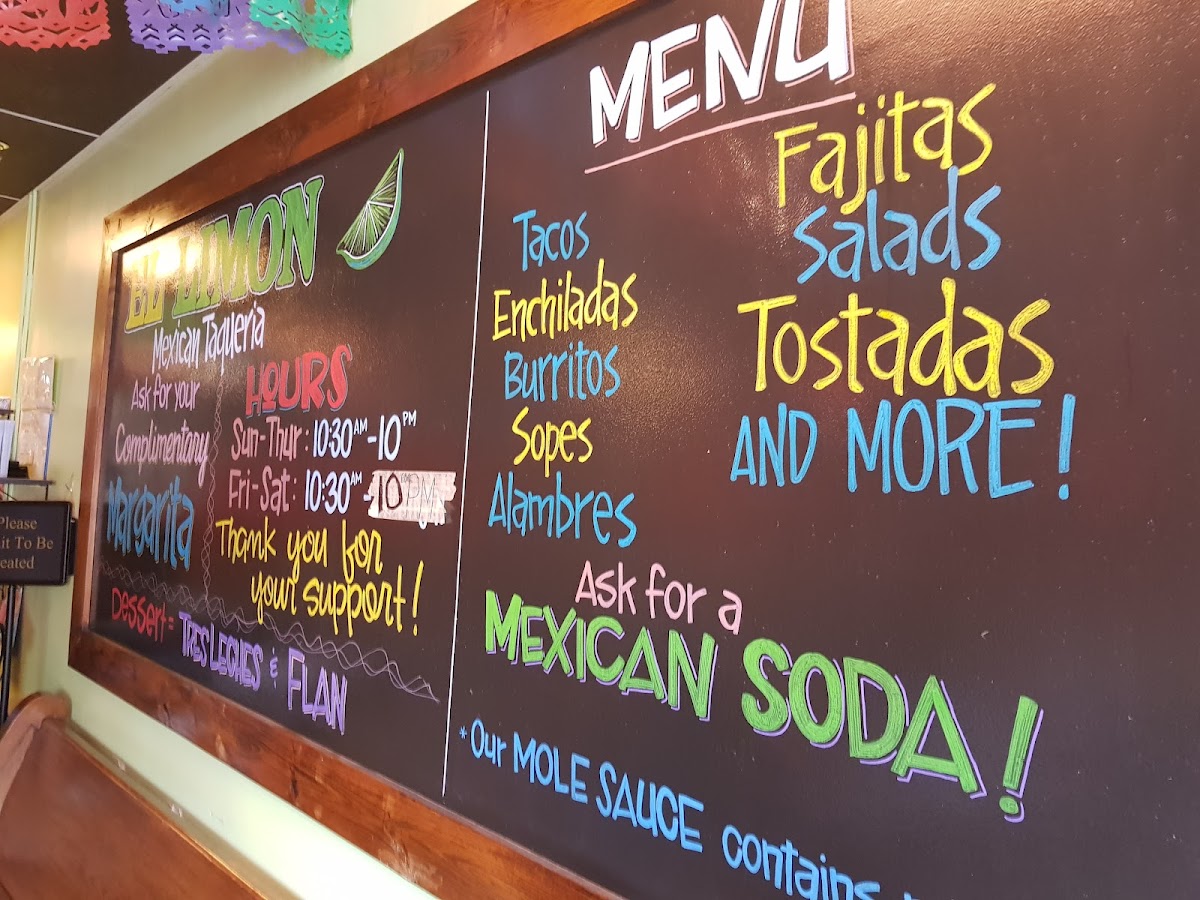 EL LIMON
Mexican Taqueria
Ask for your
Complimentary
Margarita
HOURS
Sun-Thur: 10:30AM-10PM
Fri-Sat: 10:30AM-10PM
Thank you for
your support!
Dessert = TRES LECHES & FLAN
MENU
Tacos
Enchiladas
Burritos
Sopes
Alambres
Fajitas
Salads
Tostadas
AND MORE!
ASK for a
MEXICAN SODA!
*Our MOLE SAUCE contains
Please